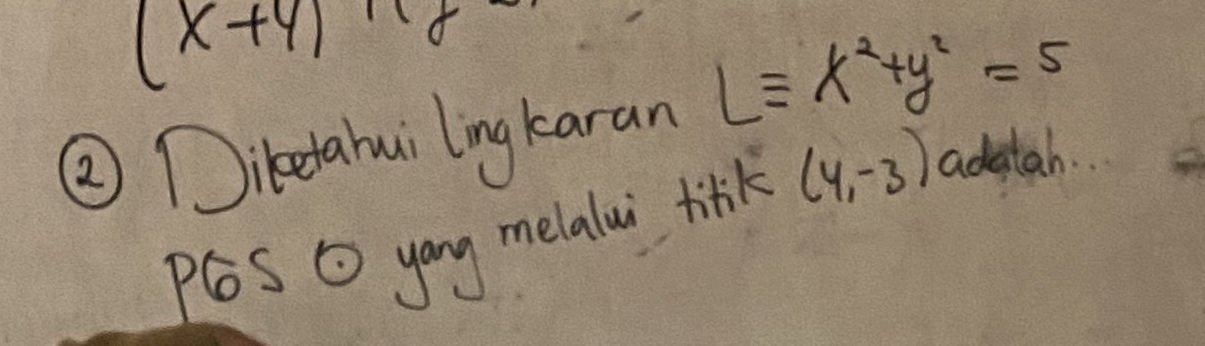 (x+4)
② Diketahui lingkaran L ≡ x² + y² = 5
PGS ⊙ yang melalui titik (4,-3) adalah...